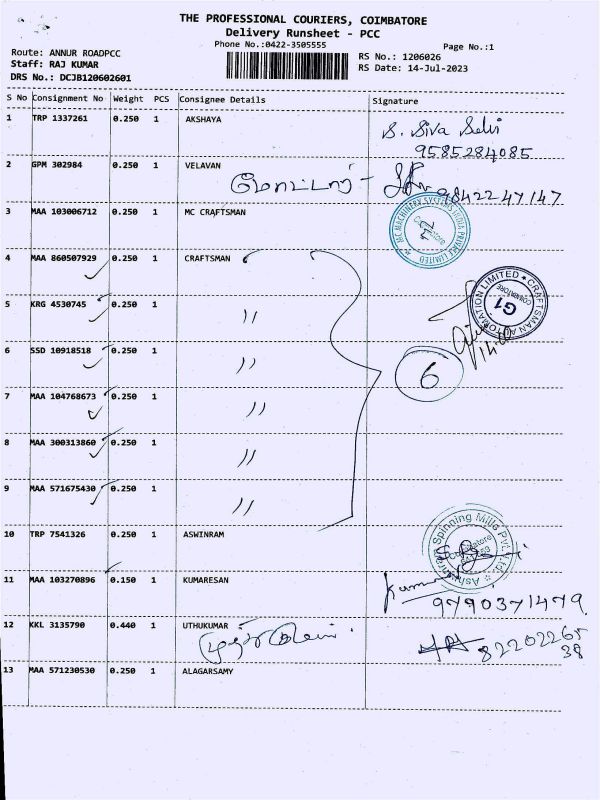 THE PROFESSIONAL COURIERS, COIMBATORE
Delivery Runsheet - PCC
Phone No.:0422-3505555
Page No.:1
Route: ANNUR ROADPCC
Staff: RAJ KUMAR
DRS No.: DCJB120602601
RS No.: 1206026
RS Date: 14-Jul-2023
S No Consignment No Weight PCS Consignee Details Signature
1 TRP 1337261 0.250 1 AKSHAYA S. Siva Selvi
9585284085
2 GPM 302984 0.250 1 VELAVAN
9842247147
3 MAA 103006712 0.250 1 MC CRAFTSMAN
MC MACHINERY SYSTEMS INDIA PRIVATE LIMITED
4 MAA 860507929 0.250 1 CRAFTSMAN
CRAFTSMAN AUTOMATION LIMITED
COIMBATORE
G1
5 KRG 4530745 0.250 1 "
6 SSD 10918518 0.250 1 "
6
7 MAA 104768673 0.250 1 "
8 MAA 300313860 0.250 1 "
9 MAA 571675430 0.250 1 "
10 TRP 7541326 0.250 1 ASWINRAM
Spinning Mills Pvt. Ltd.
11 MAA 103270896 0.150 1 KUMARESAN
9790371479
12 KKL 3135790 0.440 1 UTHUKUMAR
82202265
38
13 MAA 571230530 0.250 1 ALAGARSAMY